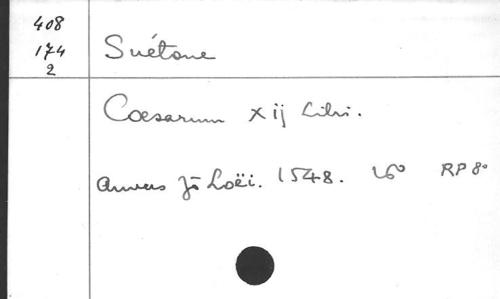 408
174
2
Suétone
Caesarum xij Libri.
Anvers Jō Loëi. 1548. 16° RP 8°